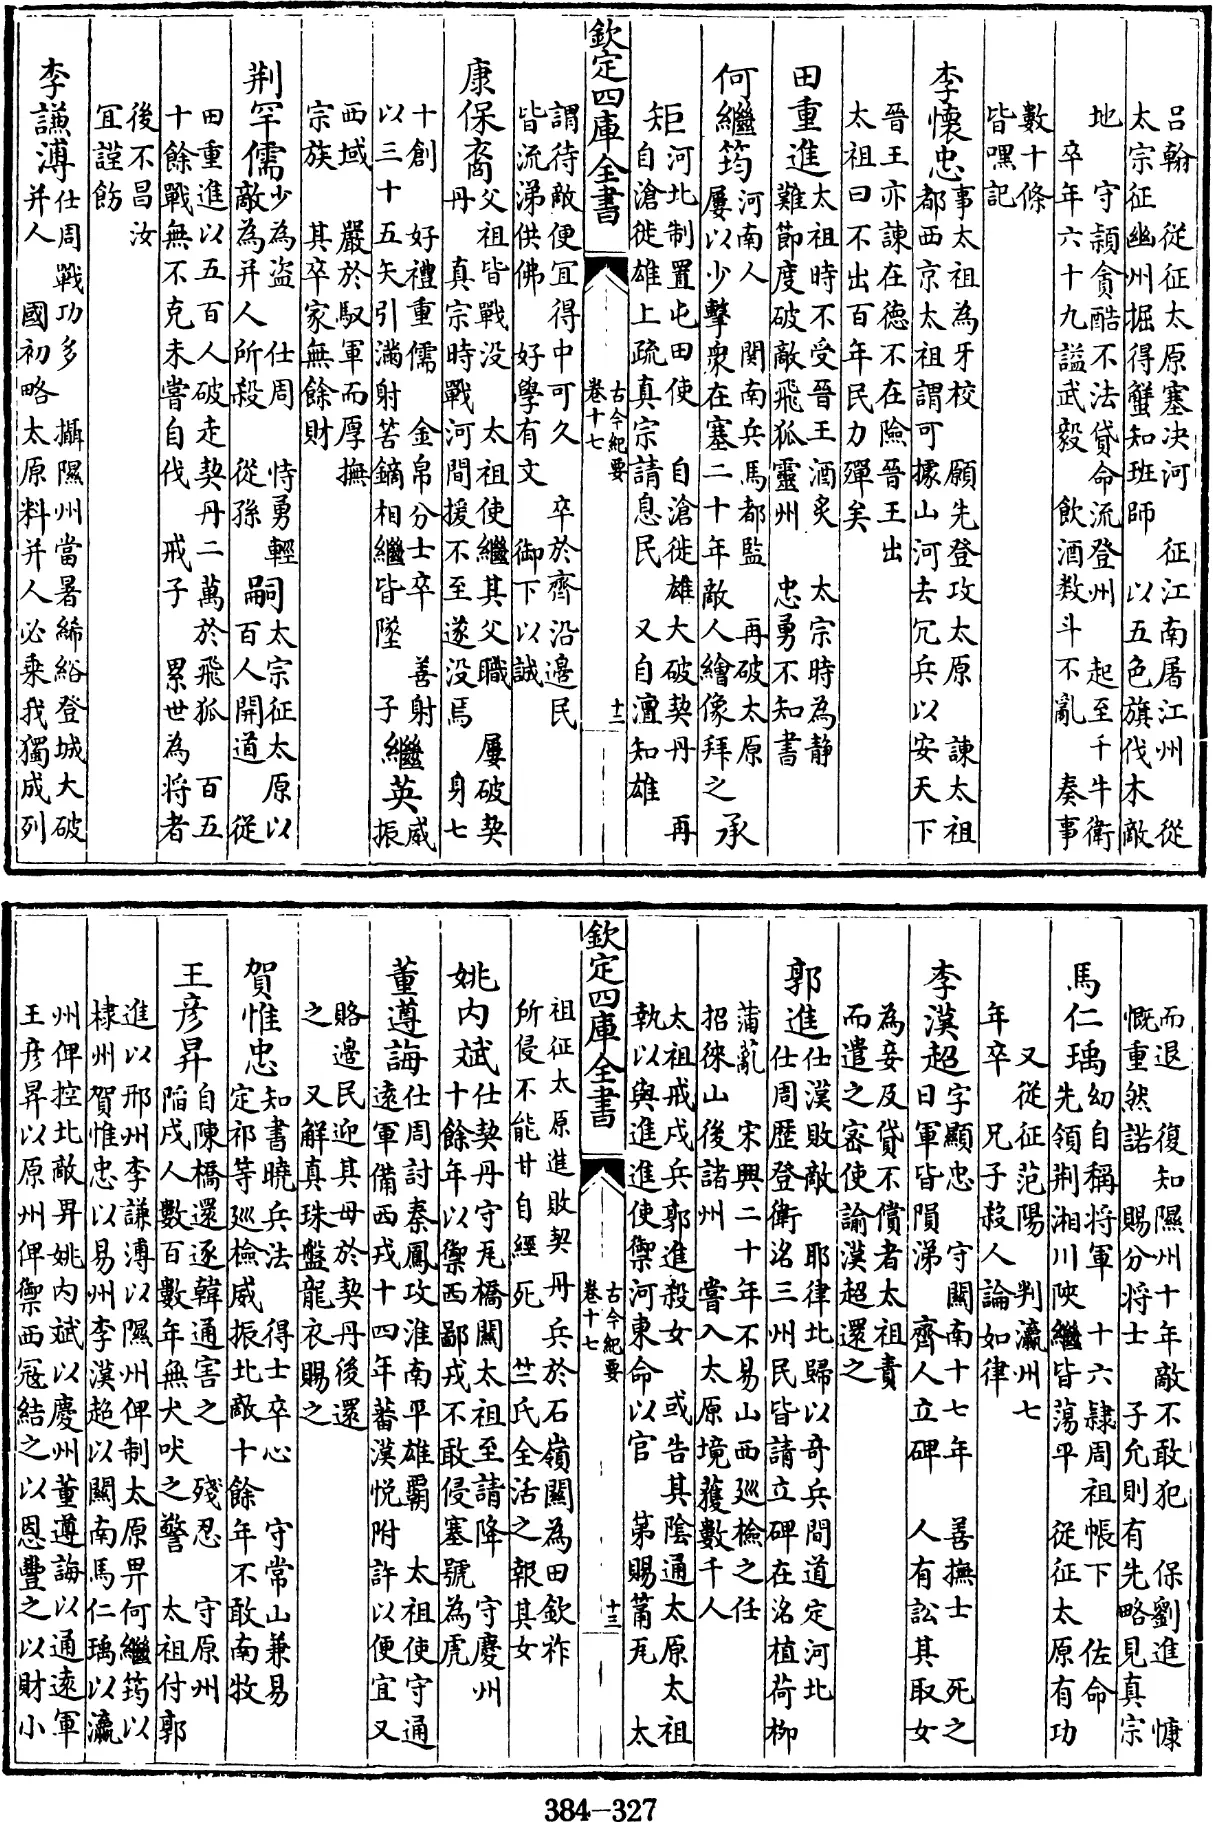 呂翰　從征太原塞决河　征江南屠江州　從
太宗征幽州掘得蟹知班師　以五色旗伐木敵
地　守潁貪酷不法貸命流登州　起至千牛衛
卒年六十九諡武毅　飲酒数斗不亂　奏事
數十條
皆嘿記
李懷忠事太祖為牙校　願先登攻太原　諫太祖
都西京太祖謂可據山河去冗兵以安天下
晉王亦諫在德不在險晉王出
太祖曰不出百年民力殫矣
田重進太祖時不受晉王酒炙　太宗時為静
難節度破敵飛狐靈州　忠勇不知書
何繼筠河南人　関南兵馬都監　再破太原
屢以少擊衆在塞二十年敵人繪像拜之　承
矩河北制置屯田使　自滄徙雄大破契丹　再
知自滄徙雄上疏真宗請息民　又自澶知雄
欽定四庫全書
古今紀要
卷十七
十二
謂待敵便宜得中可久　卒於齊沿邊民
皆流涕供佛　好學有文　御下以誠
康保裔父祖皆戰没　太祖使繼其父職　屢破契
丹　真宗時戰河間援不至遂没焉　身七
十創　好禮重儒　金帛分士卒　善射
以三十五矢引滿射筈鏑相繼皆墜　子繼英威
振
西域　嚴於馭軍而厚撫
宗族　其卒家無餘財
荆罕儒少為盗　仕周　恃勇輕
敵為并人所殺　從孫嗣太宗征太原以
百人開道　從
田重進以五百人破走契丹二萬於飛狐　百五
十餘戰無不克未嘗自伐　戒子　累世為将者
後不昌汝
宜謹飭
李謙溥仕周戰功多　攝隰州當暑絺綌登城大破
并人　國初略太原料并人必乘我獨成列
而退　復知隰州十年敵不敢犯　保劉進　慷
慨重然諾　賜分将士　子允則有先略見真宗
馬仁瑀幼自稱将軍　十六隸周祖帳下　佐命
先領荆湘川陜繼皆蕩平　從征太原有功
又從征范陽　判瀛州七
年卒　兄子殺人論如律
李漢超字顯忠　守關南十七年　善撫士　死之
日軍皆隕涕　齊人立碑　人有訟其取女
為妾及貸不償者太祖責
而遣之密使諭漢超還之
郭進仕漢敗敵　耶律北歸以奇兵間道定河北
仕周歴登衛洺三州民皆請立碑在洺植荷柳
蒲亂　宋興二十年不易山西廵檢之任
招徠山後諸州　嘗入太原境獲數千人
太祖戒戍兵郭進殺女　或告其陰通太原太祖
執以與進進使禦河東命以官　第賜莆瓦　太
欽定四庫全書
古今紀要
卷十七
十三
祖征太原進敗契丹兵於石嶺關為田欽祚
所侵不能甘自經死　竺氏全活之報其女
姚内斌仕契丹守瓦橋關太祖至請降　守慶州
十餘年以禦西鄙戎不敢侵塞號為虎
董遵誨仕周討秦鳳攻淮南平雄霸　太祖使守通
遠軍備西戎十四年蕃漢悦附許以便宜又
賂邊民迎其母於契丹後還
之　又解真珠盤龍衣賜之
賀惟忠知書曉兵法　得士卒心　守常山兼易
定祁等廵檢威振北敵十餘年不敢南牧
王彦昇自陳橋還逐韓通害之　殘忍　守原州
䧟戍人數百數年無犬吠之警　太祖付郭
進以邢州李謙溥以隰州俾制太原畀何繼筠以
棣州賀惟忠以易州李漢超以關南馬仁瑀以瀛
州俾控北敵畀姚内斌以慶州董遵誨以通逺軍
王彦昇以原州俾禦西冦結之以恩豐之以財小
384-327